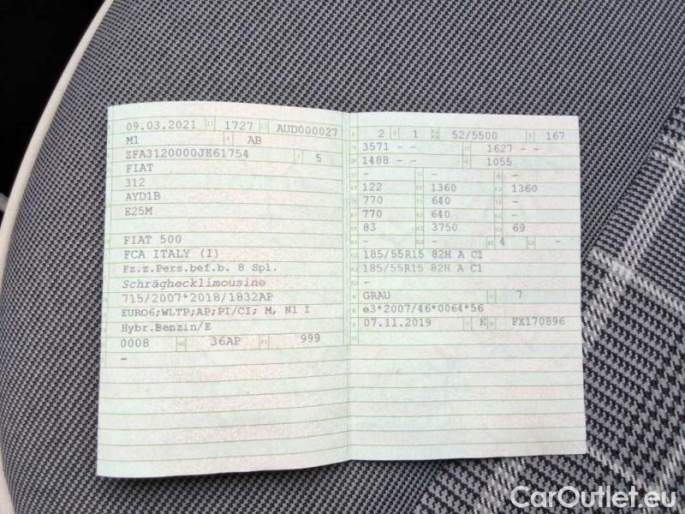 09.03.2021 1727 AUD000027
M1 AB
ZFA3120000JE61754 5
FIAT
312
AYD1B
E25M
FIAT 500
FCA ITALY (I)
Fz.z.Pers.bef.b. 8 Spl.
Schräghecklimousine
715/2007*2018/1832AP
EURO6;WLTP;AP;PI/CI; M, N1 I
Hybr.Benzin/E
0008 36AP 999
-
2 1 52/5500 167
3571 - - 1627 - -
1488 - - 1055
- - -
122 1360 1360
770 640 -
770 640 -
83 3750 69
- - 4 -
185/55R15 82H A C1
185/55R15 82H A C1
-
GRAU 7
e3*2007/46*0064*56
07.11.2019 K FX170896
CarOutlet.eu